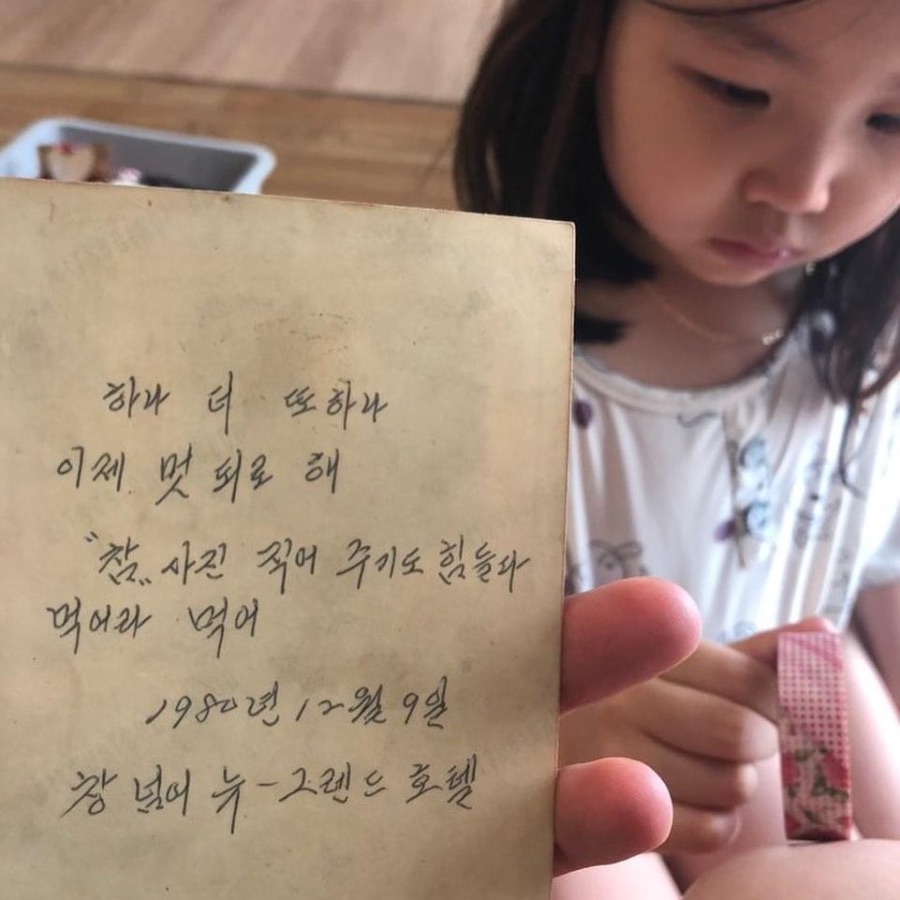 하나 더 또 하나
이제 멋 되로 해
"참" 사진 찍어 주기도 힘들다
먹어라 먹어
1980년 12월 9일
창 넘어 뉴-그랜드 호텔